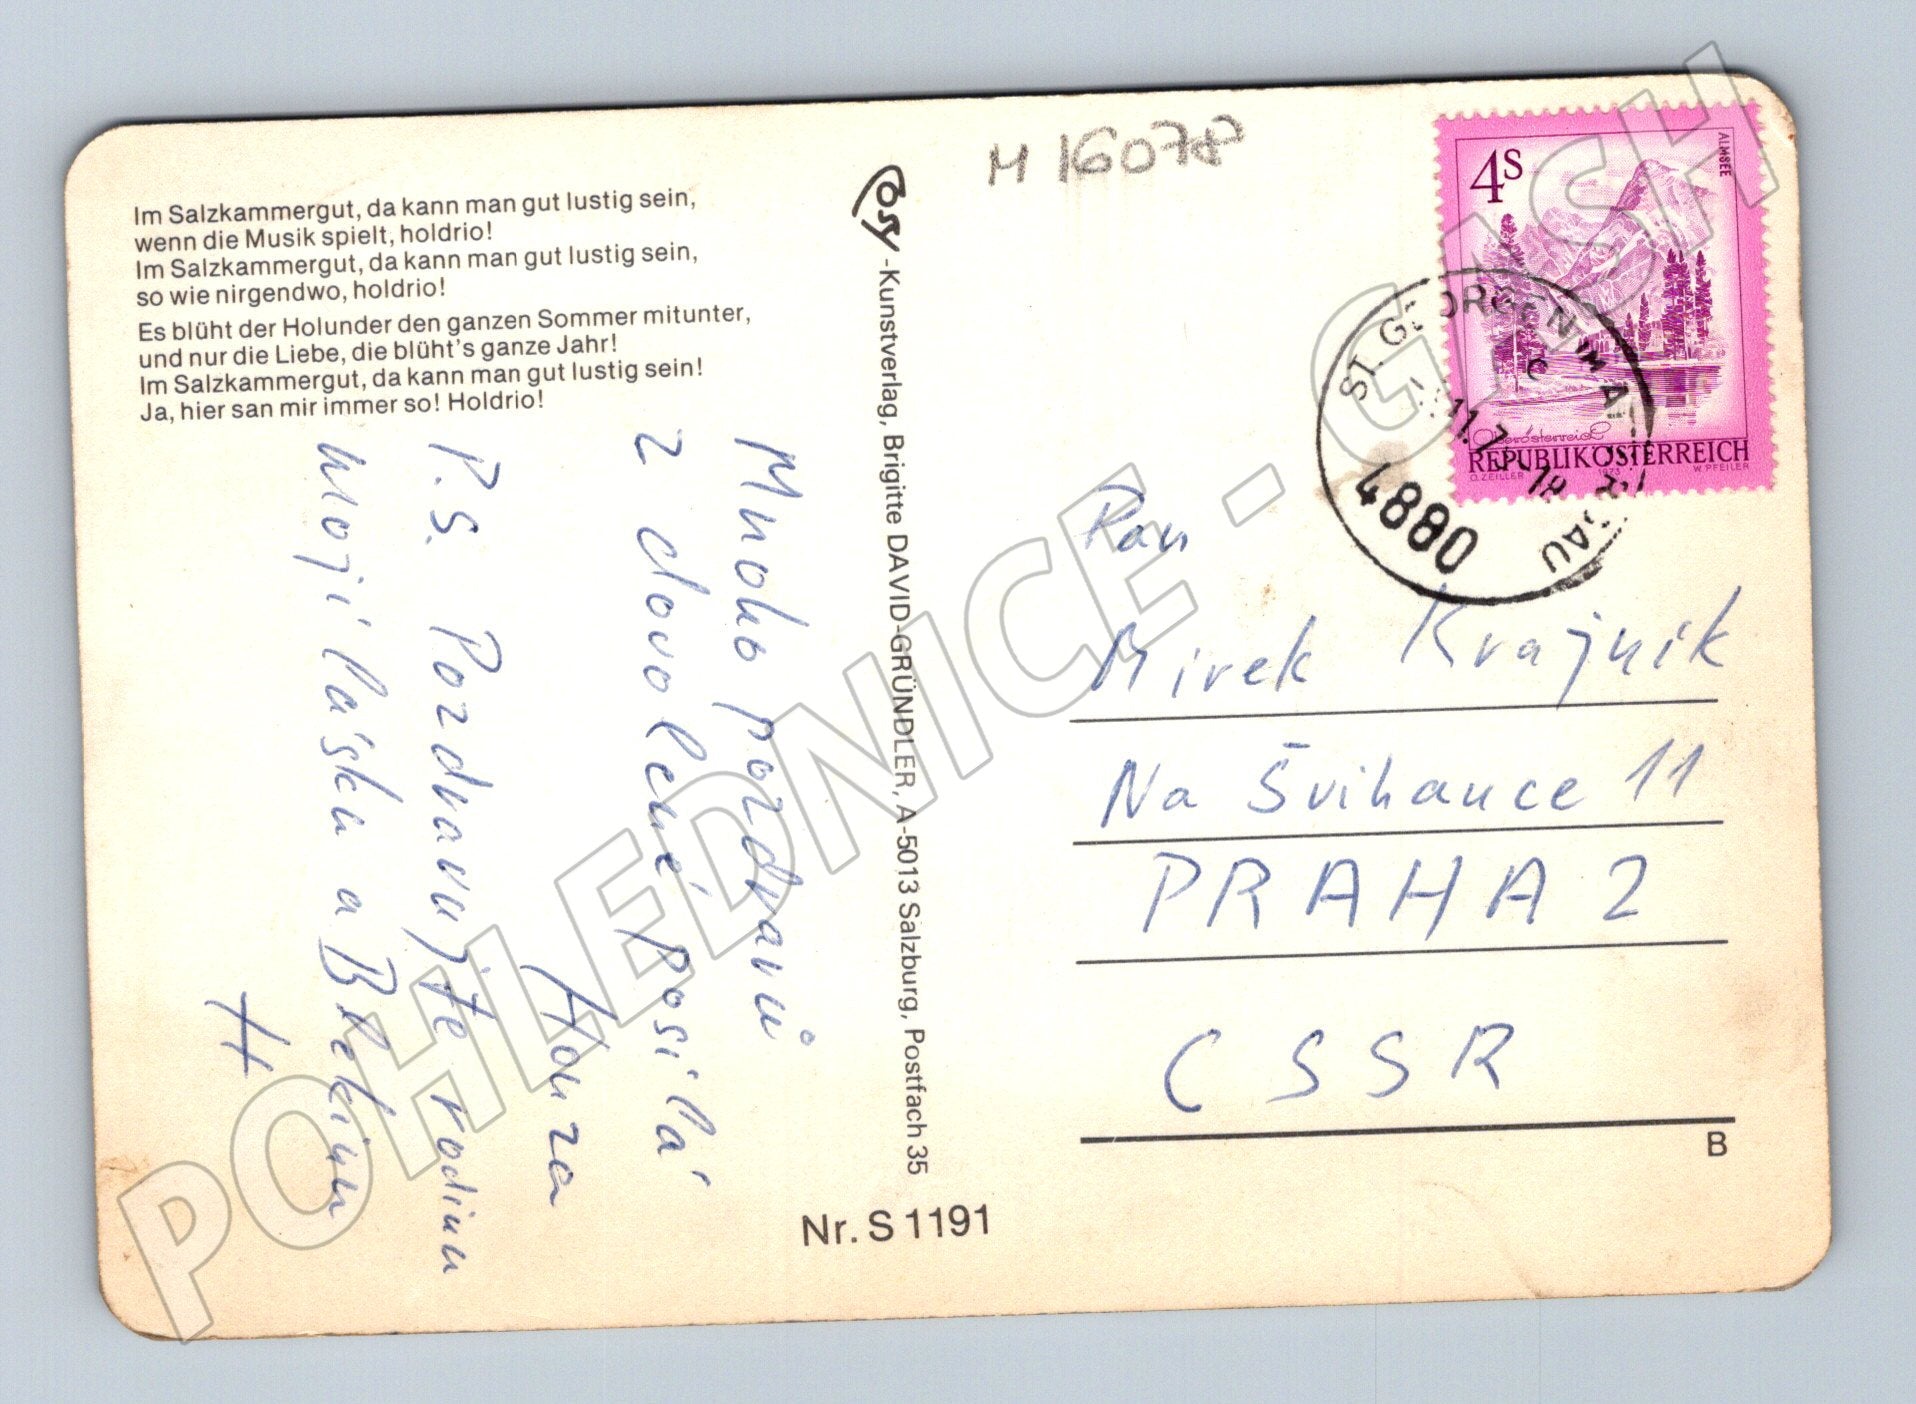 M 16078
Im Salzkammergut, da kann man gut lustig sein,
wenn die Musik spielt, holdrio!
Im Salzkammergut, da kann man gut lustig sein,
so wie nirgendwo, holdrio!
Es blüht der Holunder den ganzen Sommer mitunter,
und nur die Liebe, die blüht's ganze Jahr!
Im Salzkammergut, da kann man gut lustig sein!
Ja, hier san mir immer so! Holdrio!
Mnoho pozdravů
z dovolené posílá
Honza
P.S. Pozdravujte rodinu
mojí lásku a
H
-Kunstverlag, Brigitte DAVID-GRÜNDLER, A-5013 Salzburg, Postfach 35
Nr. S 1191
4S
ALMSEE
Oberösterreich
REPUBLIK ÖSTERREICH
O. ZEILLER 1973 W. PFEILER
ST. GEORGEN IM ATTERGAU
4880
Pan
Mirek Krajník
Na Švihance 11
PRAHA 2
CSSR
B
POHLEDNICE - GASH